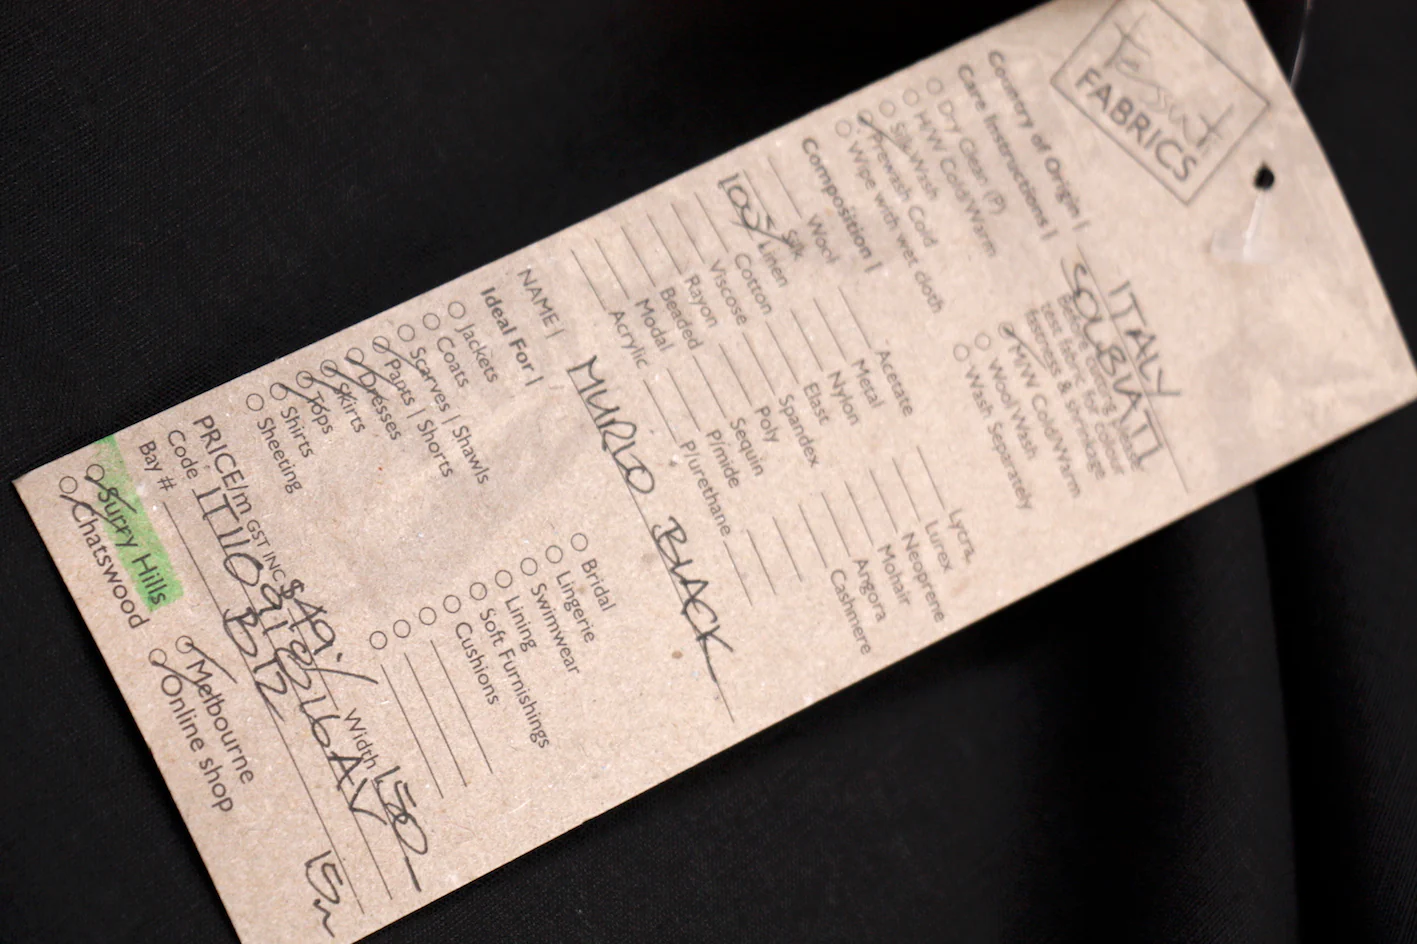 Tessuti
FABRICS
Country of Origin | ITALY
SOLBIATI
Care Instructions |
Before cutting please
test fabric for colour
fastness & shrinkage
Dry Clean (P)
H/W Cold/Warm
Silk Wash
Prewash Cold
Wipe with wet cloth
M/W Cold/Warm
Wool Wash
Wash Separately
Composition |
Wool
Silk
100% Linen
Cotton
Viscose
Rayon
Beaded
Modal
Acrylic
Acetate
Metal
Nylon
Elast
Spandex
Poly
Sequin
P/mide
P/urethane
Lycra
Lurex
Neoprene
Mohair
Angora
Cashmere
NAME | BLACK
Ideal For |
Jackets
Coats
Scarves | Shawls
Pants | Shorts
Dresses
Skirts
Tops
Shirts
Sheeting
Bridal
Lingerie
Swimwear
Lining
Soft Furnishings
Cushions
PRICE/m GST INC $49. Width 150
Code
Bay #
Surry Hills
Chatswood
Melbourne
Online shop
15m